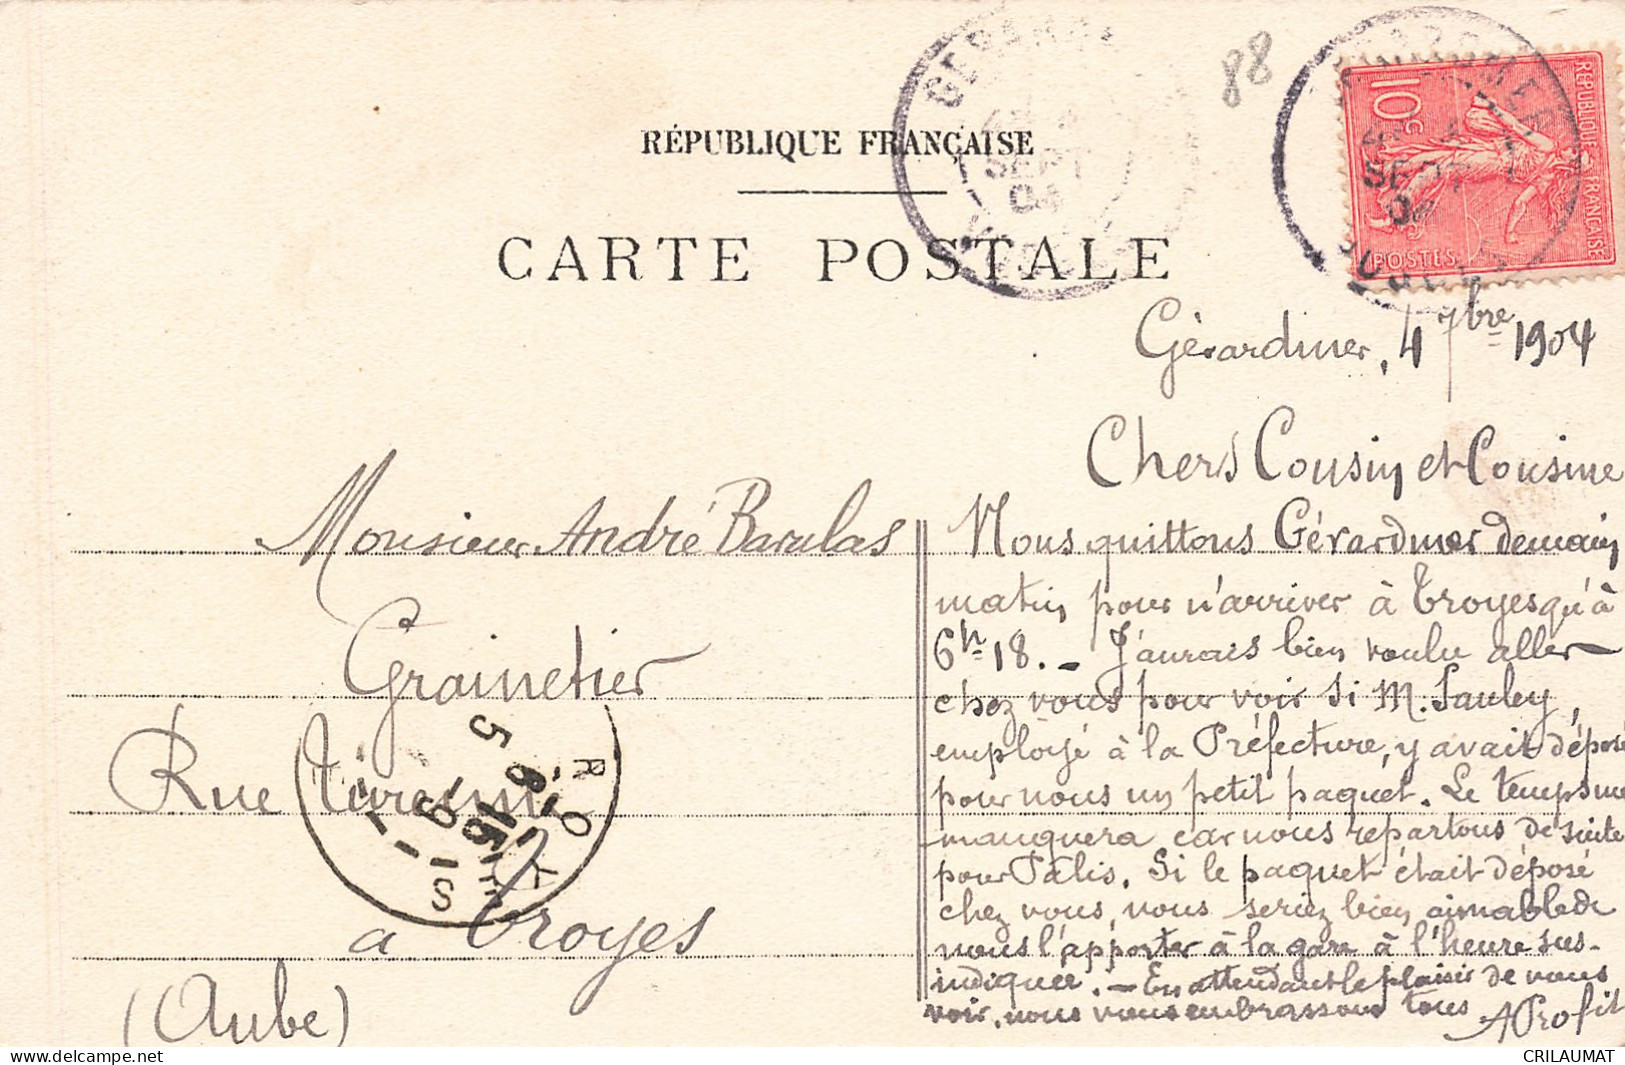 GÉRARDMER
SEPT
04
88
10c
RÉPUBLIQUE FRANÇAISE
POSTES
SEPT
04
VOSGES
RÉPUBLIQUE FRANÇAISE
CARTE POSTALE
Gérardmer, 4 7bre 1904
Chers Cousin et Cousine
Nous quittons Gérardmer demain
matin pour n'arriver à Troyes qu'à
6h 18. — J'aurais bien voulu aller
chez vous pour voir si M. Sauley,
employé à la Préfecture, y avait déposé
pour nous un petit paquet. Le temps me
manquera car nous repartons de suite
pour Palis. Si le paquet était déposé
chez vous, nous seriez bien aimable de
nous l'apporter à la gare à l'heure sus-
indiquée. — En attendant le plaisir de vous
voir, nous vous embrassons tous
A Profit
Monsieur André Barulas
Grainetier
Rue
à Troyes
(Aube)
TROYES
CRILAUMAT